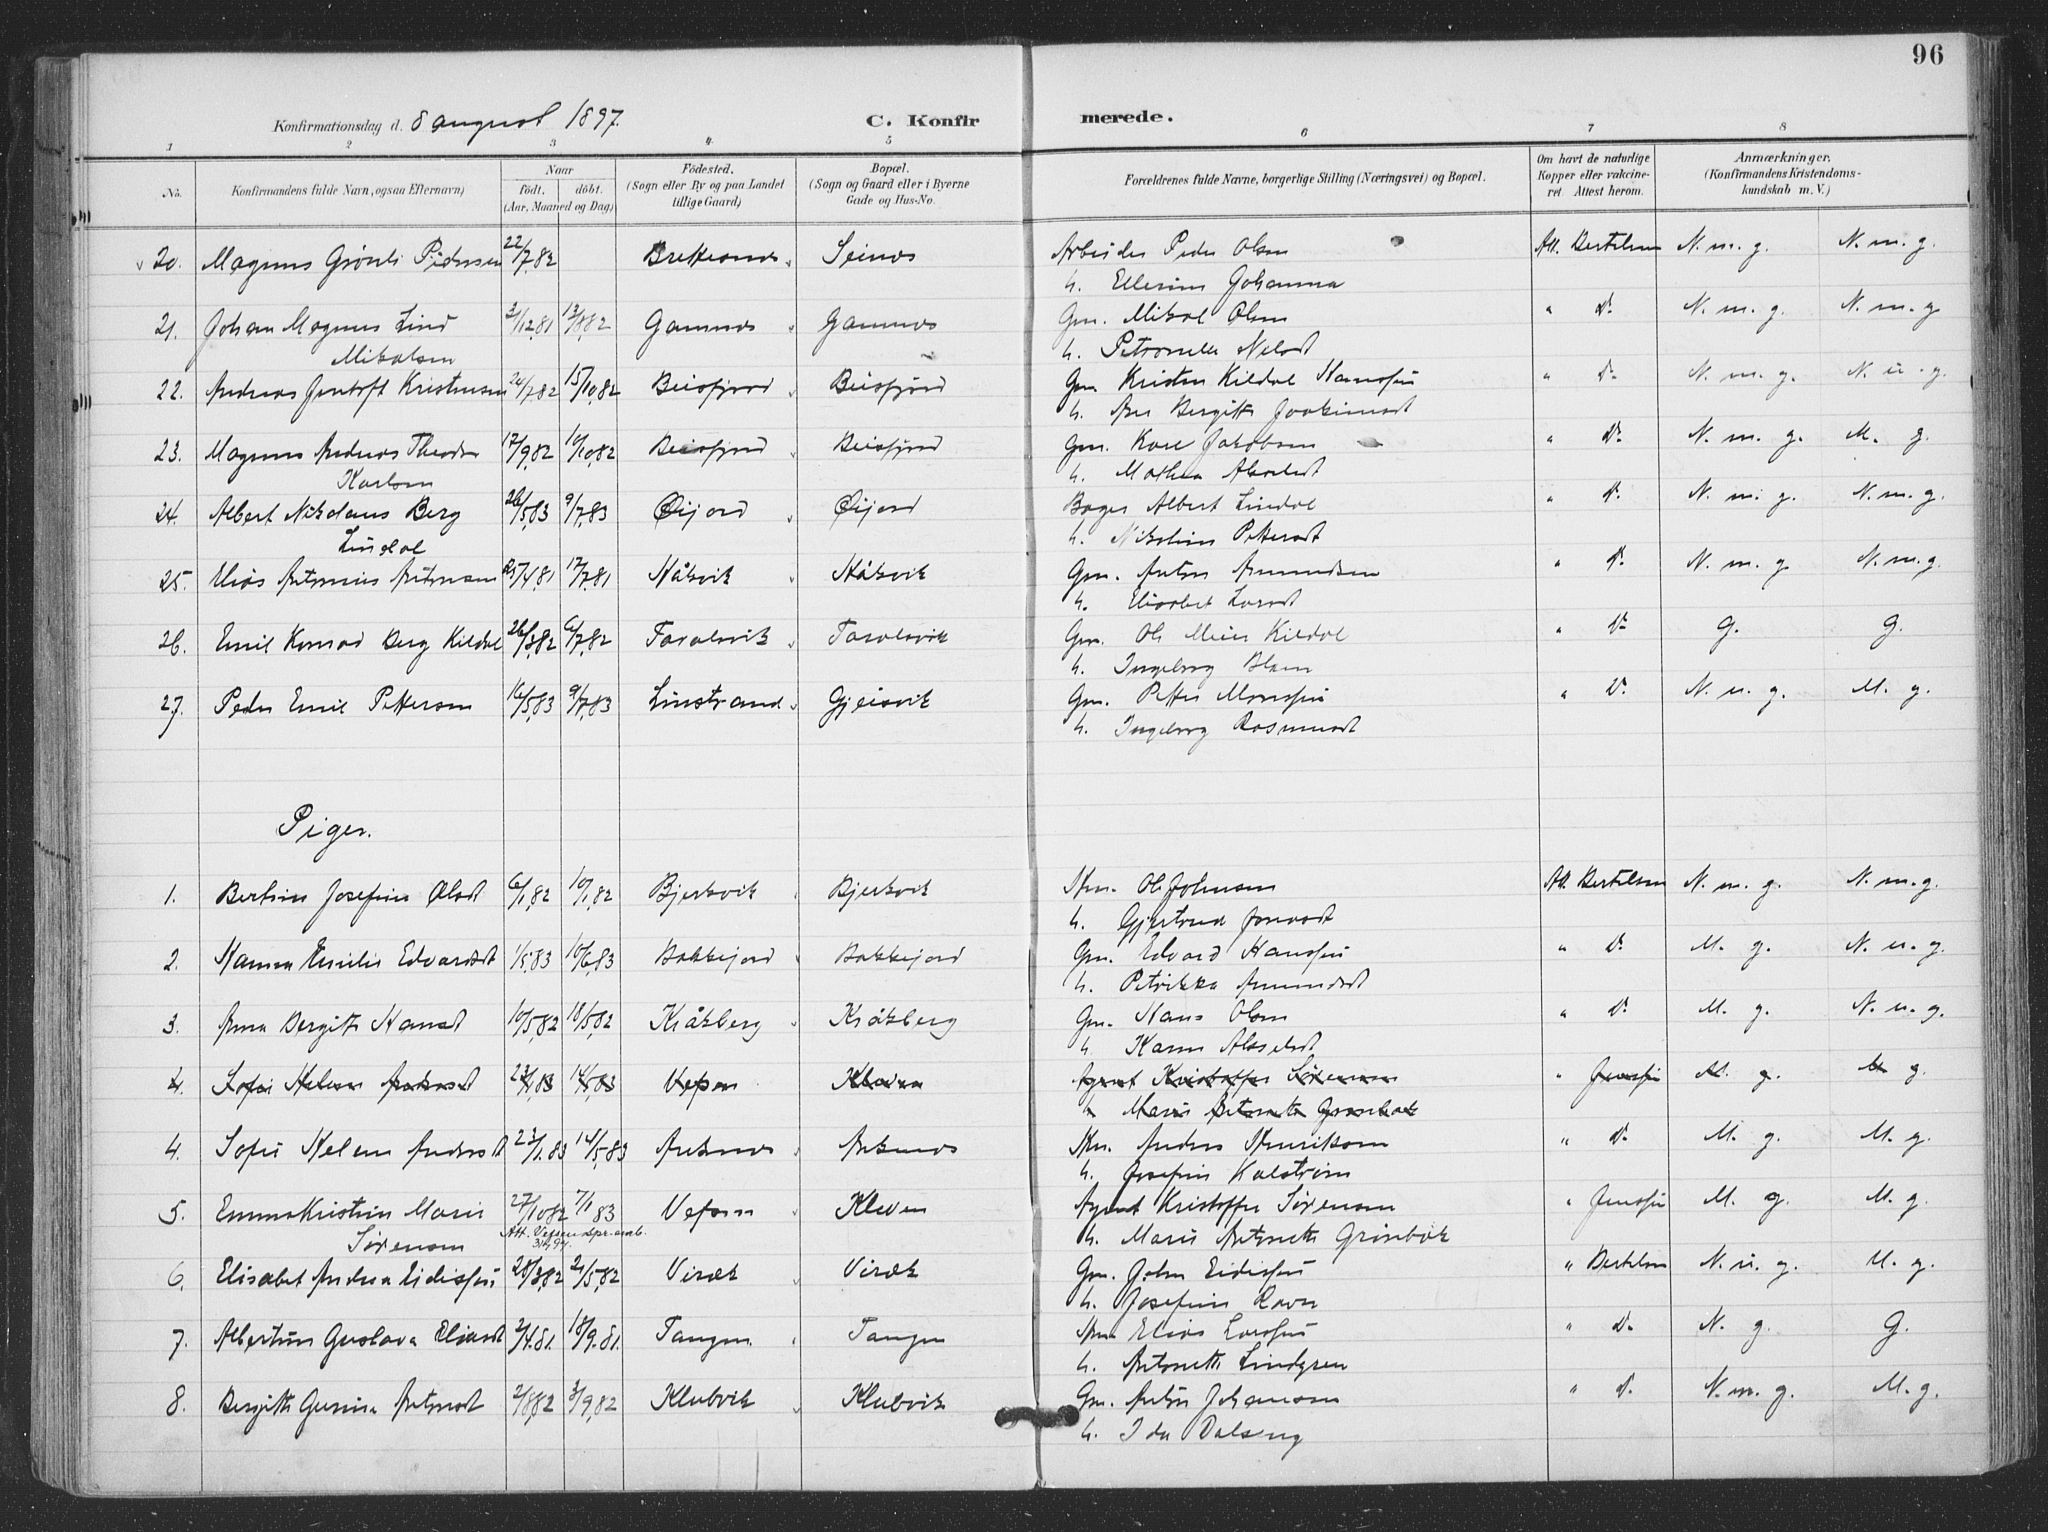 96
Konfirmationsdag d. 8 august 1897.
C. Konfirmerede.
1 2 3 4 5 6 7 8
No. Konfirmandens fulde Navn, ogsaa Efternavn) Naar födt. döbt. (Aar, Maaned og Dag) Födested. (Sogn eller By og paa Landet tillige Gaard) Bopæl. (Sogn og Gaard eller i Byerne Gade og Hus-No. Forældrenes fulde Navne, borgerlige Stilling (Næringsvei) og Bopæl. Om havt de naturlige Kopper eller vakcineret. Attest herom. Anmærkninger. (Konfirmandens Kristendomskundskab m. V.)
20. Magnus Grönli Pedersen 22/7,82 Seinæs Arbeider Peder Olsen Att. Bertelsen N. m. g. N. m. g.
h. Johanna
21. Johan Magnus Lind 2/12,81 13/8,82 Gamnes Gamnes Gm. Mikal Olsen " Do N. m. g. N. m. g.
Mikalsen h. Petronelle Nilsdt
22. Andreas Jentoft Kristensen 24/7,82 15/10,82 Beisfjord Beisfjord Gm. Kristen Kildal Hanssen " Do N. m. g. N. u. g.
h. Ane Bergitte Joakimsdt
23. Magnus Andreas Theodor 17/9,82 10/10,82 Beisfjord Beisfjord Gm. Karl Jakobsen " Do N. m. g. M. g.
Karlsen h. Mathea Akseldt
24. Albert Nikolaus Berg 26/5,83 9/7,83 Øijord Øijord Bager Albert Lindal " Do N. m. g. N. m. g.
Lindal h. Nikoline Pettersdt
25. Antonius Antonsen 25/4,81 17/7,81 Håkvik Håkvik Gm. Anton Amundsen " Do N. m. g. N. m. g.
h. Elisabet Larsdt
26. Emil Konrad Berg Kildal 26/3,82 6/7,82 Taralsvik Taralsvik Gm. Ole Meier Kildal " Do G. G.
h. Ingeborg
27. Peder Emil Pettersen 16/5,83 9/7,83 Linstrand Gjeisvik Gm. Petter Monssen " Do N. u. g. M. g.
h. Ingeborg Rasmusdt
Piger.
1. Bertine Josefine Olsdt 6/1,82 10/1,82 Bjerkvik Bjerkvik Ole Johnsen Att. Bertelsen N. m. g. N. m. g.
h. Gjertrud
2. Hanna Emilie Edvardsdt 1/5,83 10/6,83 Bokkejord Bokkejord Gm. Edvard Hanssen " Do M. g. N. u. g.
h. Petrikka Amundsdt
3. Anna Bergitte Hansdt 10/5,82 18/5,82 Kråkberg Kråkberg Gm. Hans Olsen " Do M. g. N. u. g.
h. Karen Akseldt
4. Sofie Helene Andersdt 23/1,83 14/5,83 Vefsen Kleven Agent Kristoffer Sørensen " Jenssen M. g. M. g.
h. Marie Antonette Grønbæk
4. Sofie Helene Andersdt 23/1.83 14/5,83 Ankenes Ankenes Anders Henriksen " Do M. g. M. g.
h. Josefine Kalstrøm
5. Emma Kristine Marie 27/10 82 7/1 83 Vefsen Kleven Agent Kristoffer Sørensen " Jenssen M. g. M. g.
Sørensen Att. Vefsen h. Marie Antonette Grønbæk
6. Elisabet Andrea Eidissen 28/3,82 21/5,82 Virak Virak Gm. John Eidissen " Bertelsen N. u. g. M. g.
h. Josefine Ravn
7. Albertine Gustava Eliasdt 2/4.81. 18/9.81. Tangen. Tangen Elias Larssen " Do N. g. G.
h. Antonette Lindgren
8. Bergitte Antonsdt 2/8,82 3/9,82 Klubvik Klubvik Gm. Anton Johansen " Do N. m. g. M. g.
h. Ida Dalseng